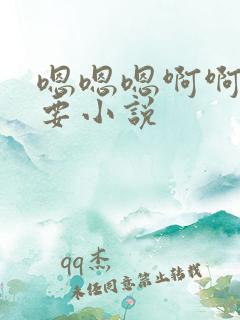 嗯嗯嗯啊啊
要小说
qq杰
未经同意禁止转载